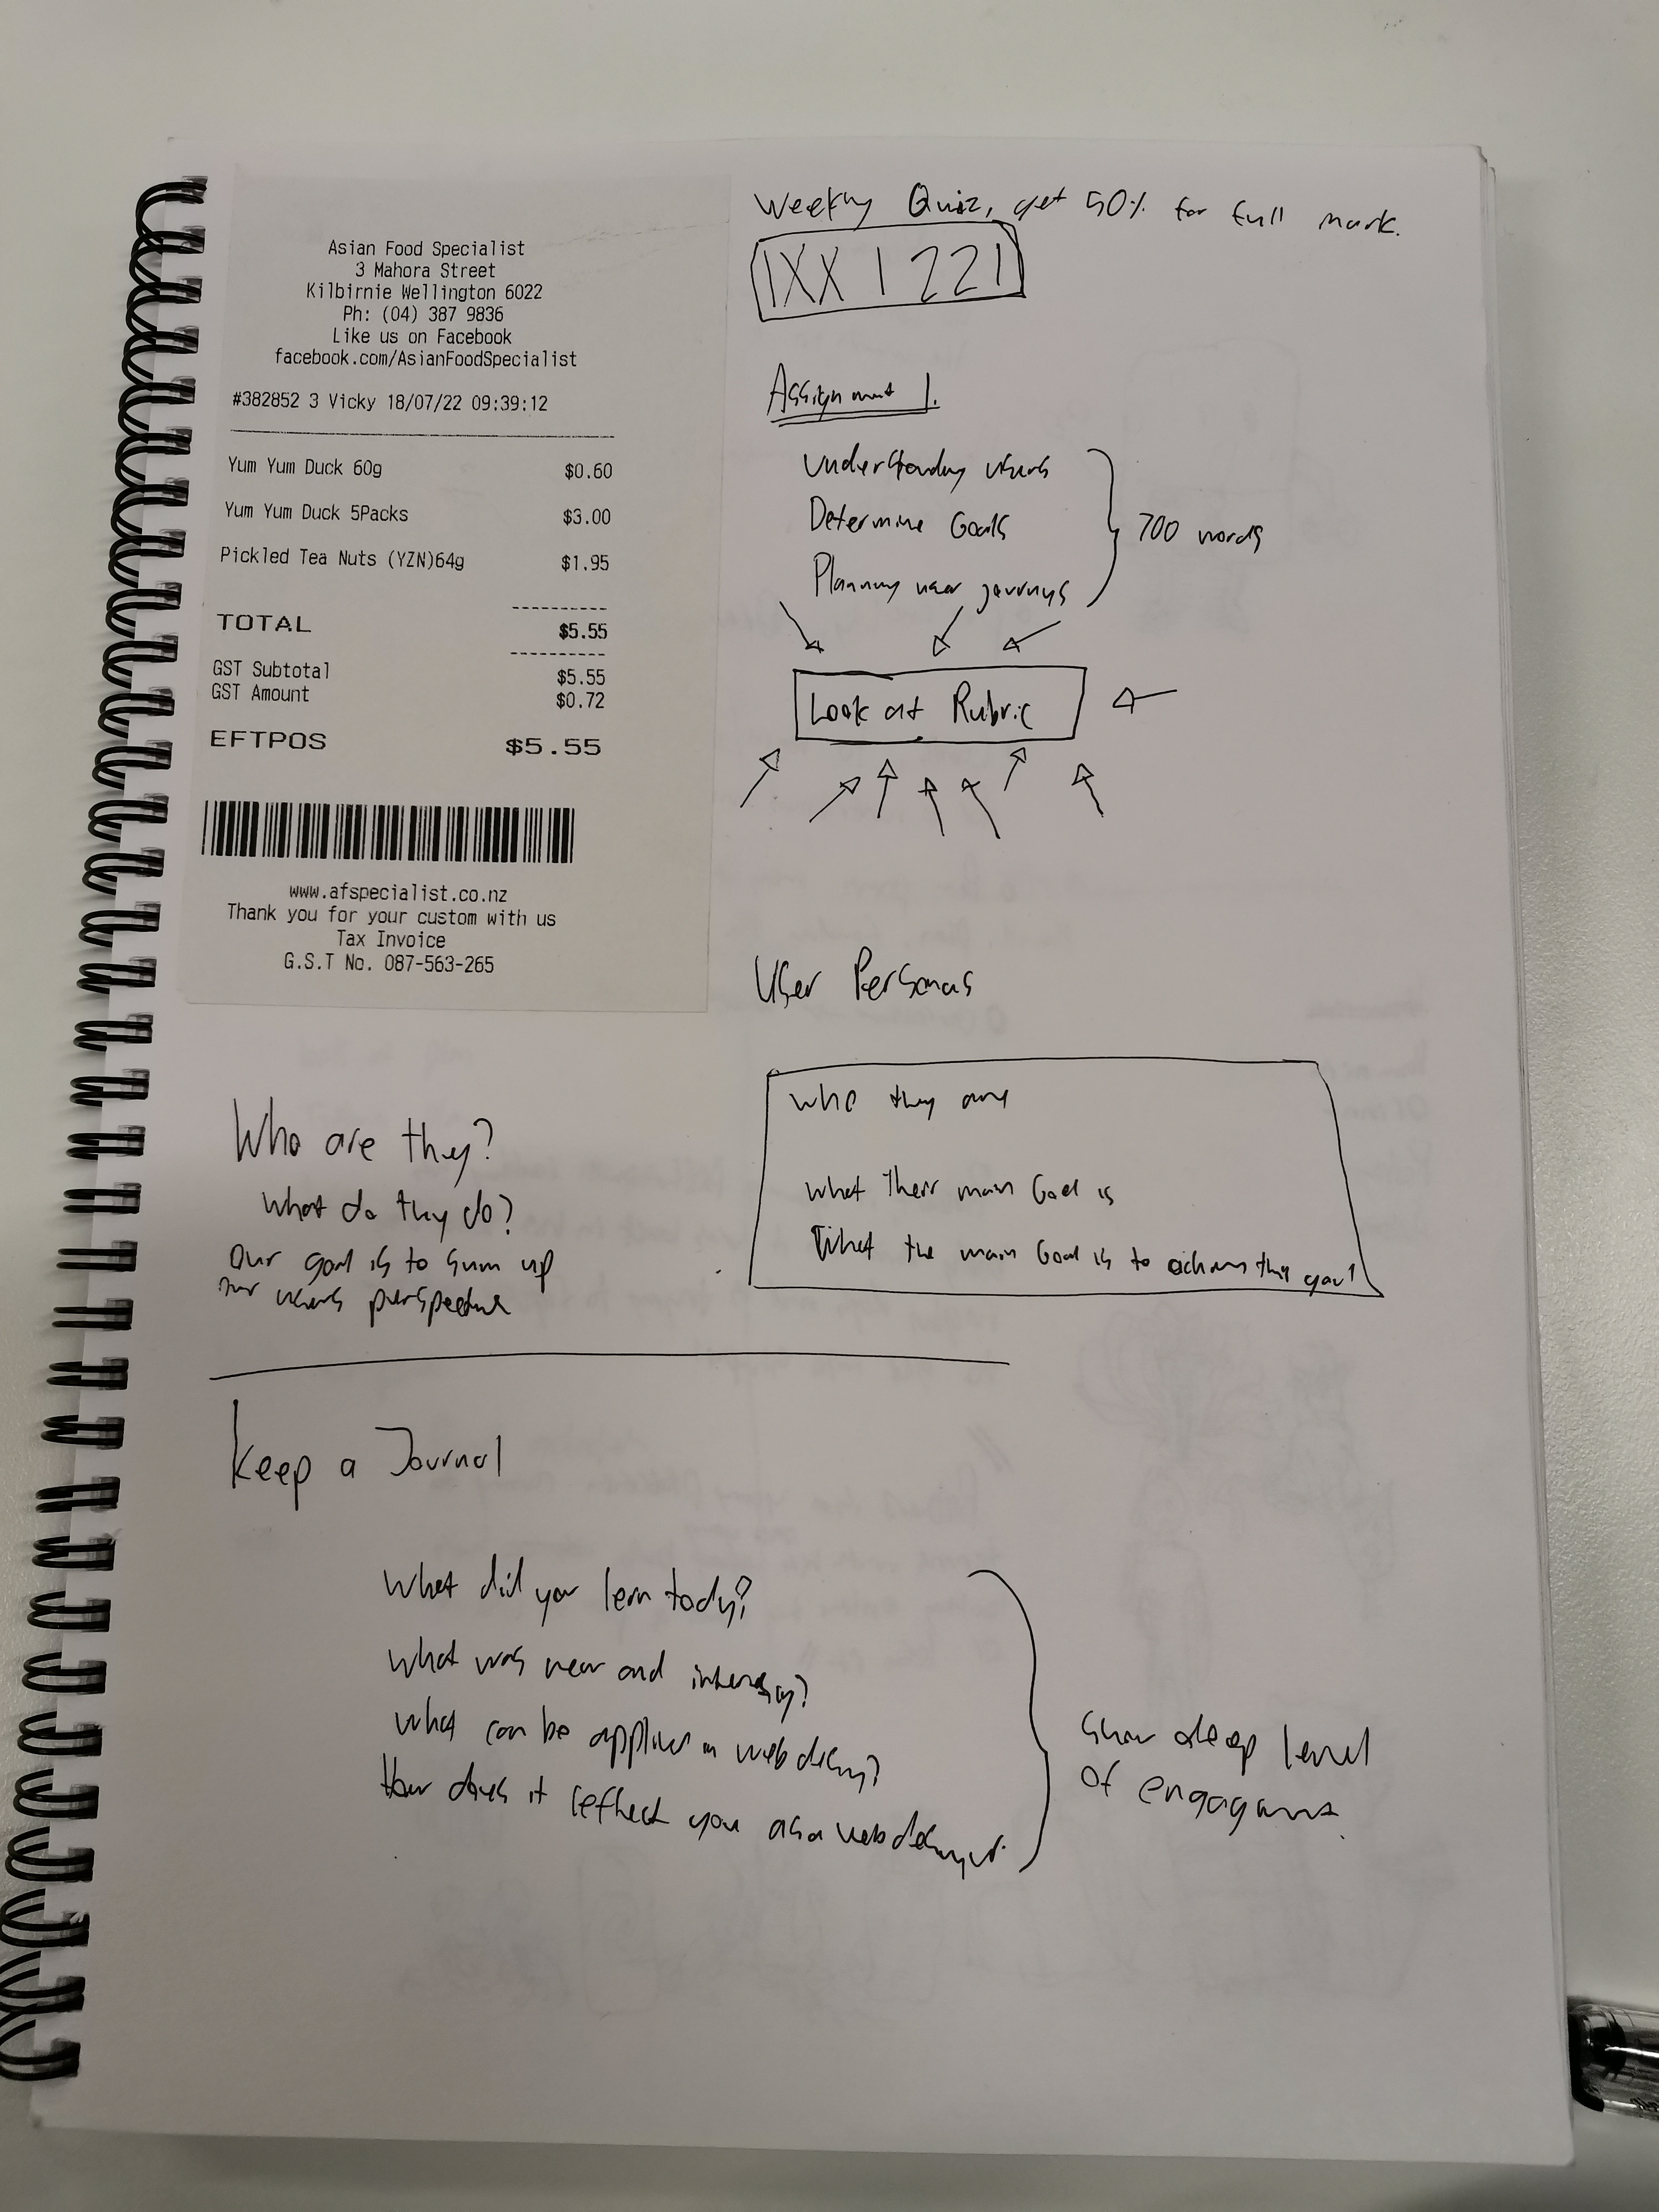 Asian Food Specialist
3 Mahora Street
Kilbirnie Wellington 6022
Ph: (04) 387 9836
Like us on Facebook
facebook.com/AsianFoodSpecialist
#382852 3 Vicky 18/07/22 09:39:12
Yum Yum Duck 60g $0.60
Yum Yum Duck 5Packs $3.00
Pickled Tea Nuts (YZN)64g $1.95
TOTAL $5.55
GST Subtotal $5.55
GST Amount $0.72
EFTPOS $5.55
www.afspecialist.co.nz
Thank you for your custom with us
Tax Invoice
G.S.T No. 087-563-265
Weekly Quiz, get 50% for full mark.
IXX 1221
Assignment 1.
Understanding users
Determine Goals
Planning user journeys
700 words
Look at Rubric
User Personas
who they are
what their main Goal is
What the main Goal is to
Who are they?
What do they do?
Our goal is to sum up
our users perspective
Keep a Journal
What did you lern today?
What was new and
What can be applied in web design?
How does it reflect you as a web designer.
Show deep level
of